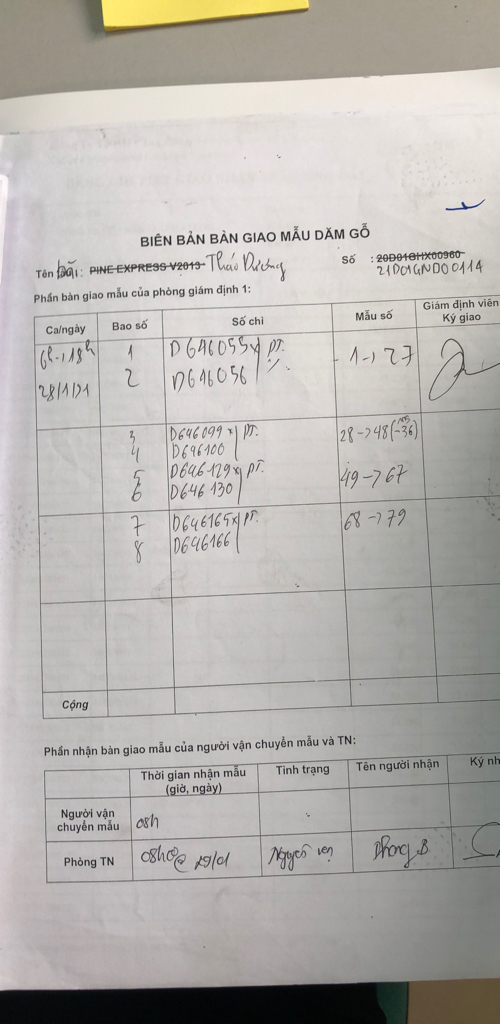 BIÊN BẢN BÀN GIAO MẪU DĂM GỖ
Tên bãi : PINE EXPRESS V2013 Thảo Dương Số : 20D01GHX00960
21D01GND00114
Phần bàn giao mẫu của phòng giám định 1:
Ca/ngày Bao số Số chì Mẫu số Giám định viên
Ký giao
6h->18h 1 D646055x PT. 1->27
28/1/21 2 D646056
3 D646099x PT. 28->48(-36)
4 D646100
5 D646129x PT. 49->67
6 D646130
7 D646165x PT. 68->79
8 D646166
Cộng
Phần nhận bàn giao mẫu của người vận chuyển mẫu và TN:
Thời gian nhận mẫu Tình trạng Tên người nhận Ký nh
(giờ, ngày)
Người vận
chuyển mẫu 08h
Phòng TN 08h00 29/01 Nguyên vẹn Phong B